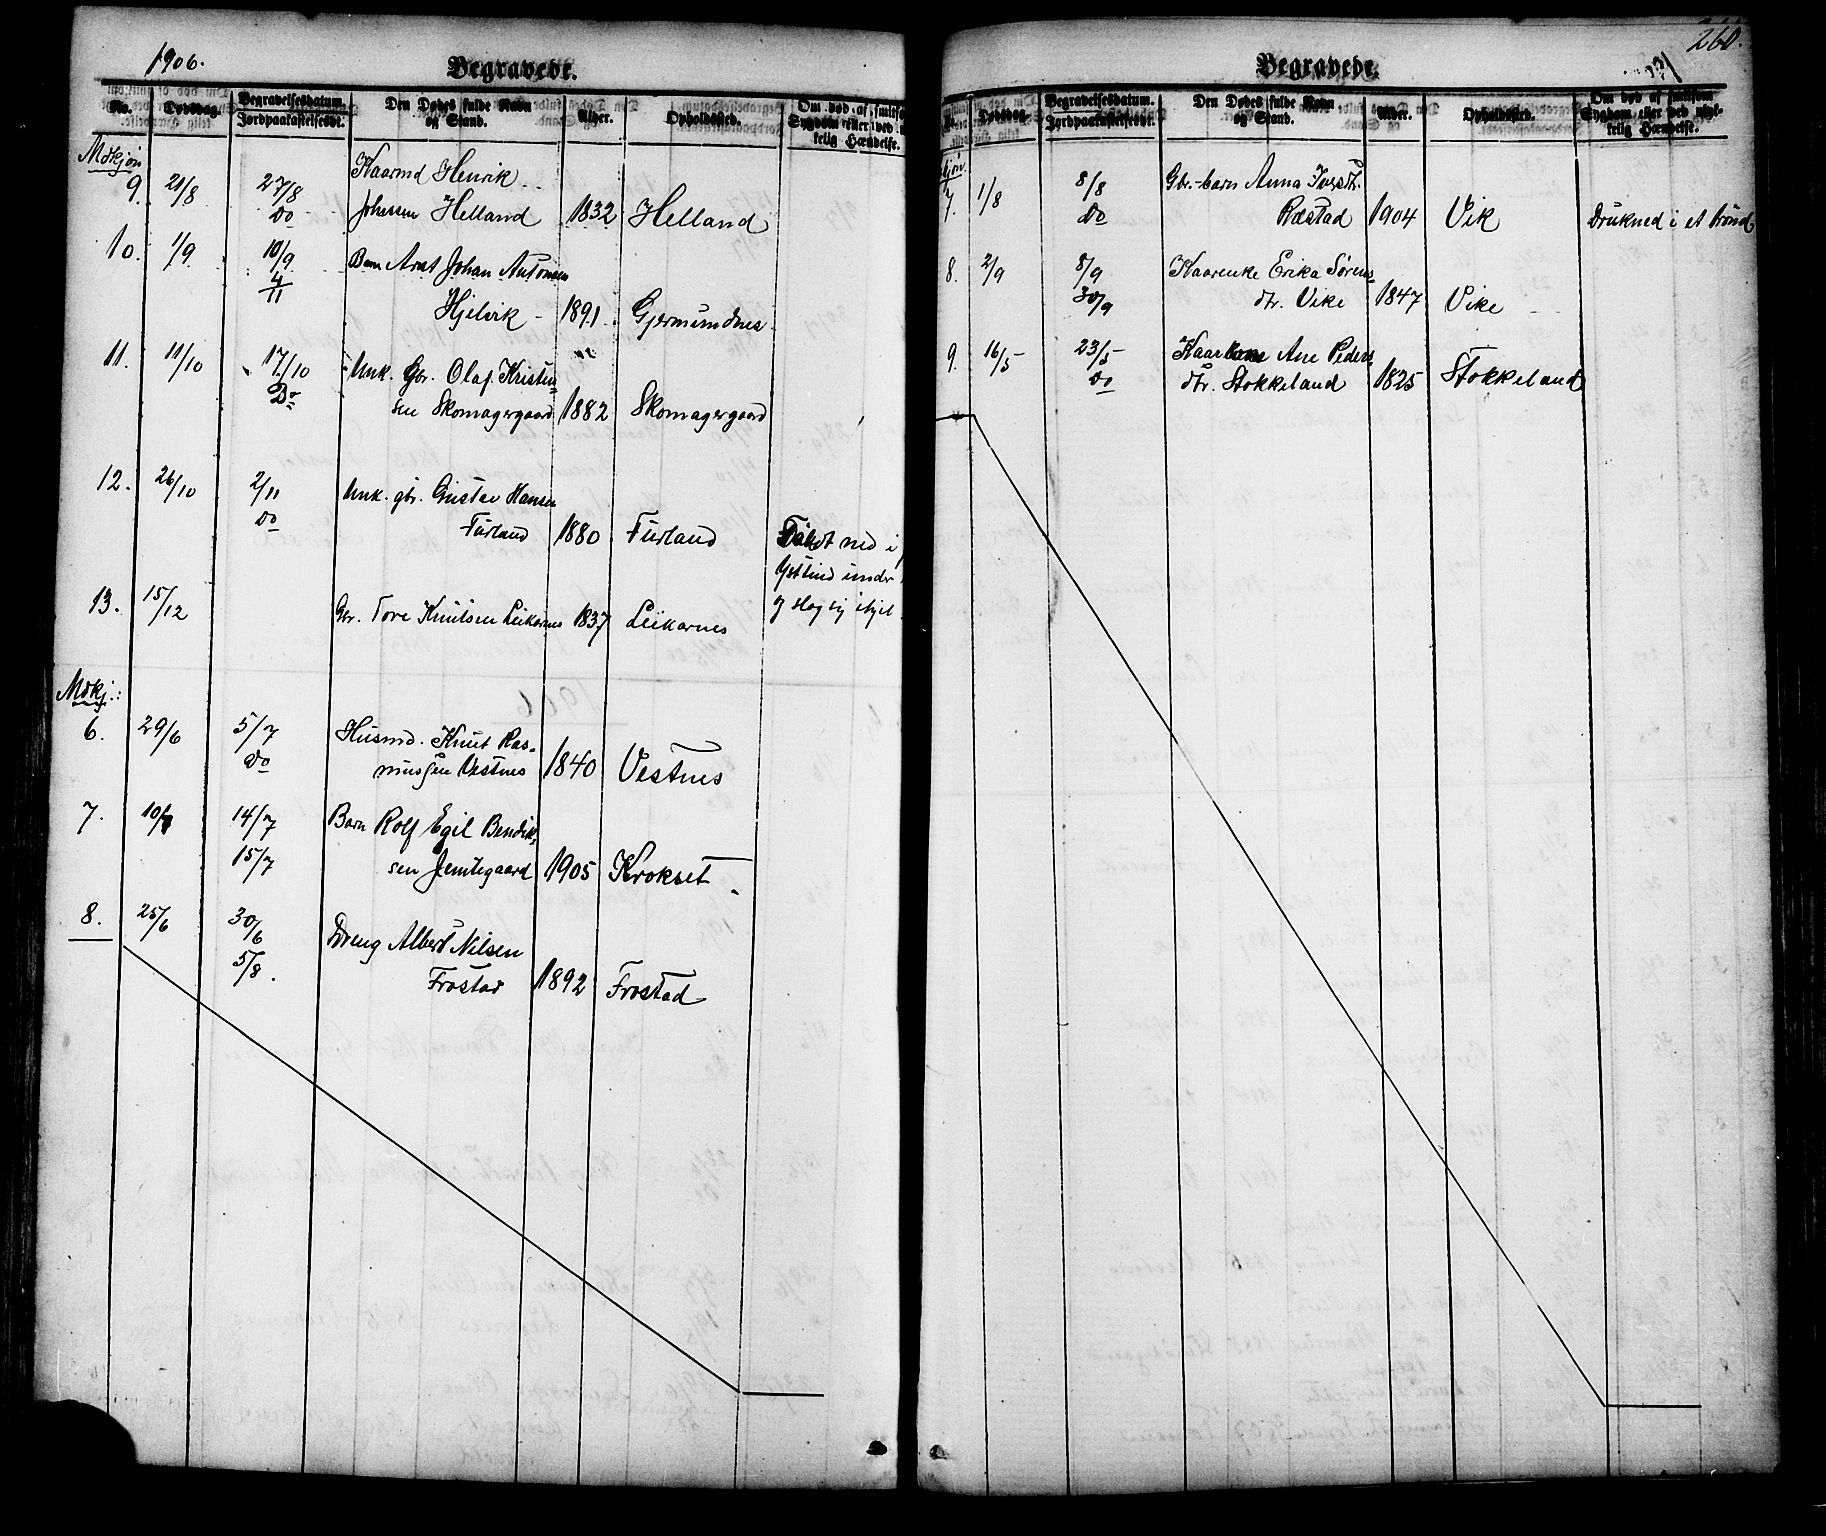 1906.
Begravede.
No.
Dødsdag.
Begravelsesdatum.
Jordpaakastelsesdt.
Den Dødes fulde Navn
og Stand.
Alder.
Opholdssted.
Om død af smitsom
Sygdom eller ved
kelig Hændelse.
Mdkjøn
9. 21/8 27/8 Kaarmd Henrik
Do Johssen Helland 1832 Helland
10. 1/9 10/9 Barn Arnt Johan Antonsen
4/11 Hjelvik 1891. Gjermundnes.
11. 11/10 17/10 Unk. Gbr. Olaf Kristen-
Do sen Skomagergaard 1882 Skomagergaard
12. 26/10 2/11 Unk. gbr. Gustav Hansen
Do Furland 1880 Furland ned i
under
13. 15/12 Gbr. Tore Knutsen Leikarnes 1837 Leikarnes og slog sig ihjel.
Mdkj.:
6. 29/6 5/7 Husmd. Knut Ras-
Do mussen Vestnes 1840 Vestnes
7. 10/7 14/7 Barn Rolf Egil Bendik-
15/7 sen Jemtegaard 1905 Krokset
8. 25/6 30/6 Dreng Albert Nilsen
5/8. Frostad 1892 Frostad
260.
Begravede.
No.
Dødsdag.
Begravelsesdatum.
Jordpaakastelsesdt.
Den Dødes fulde Navn
og Stand.
Alder.
Opholdssted.
Om død af smitsom
Sygdom eller ved ulyk-
kelig Hændelse.
kjøn
7. 1/8 8/8 Gbr.-barn Anna Iversdtr.
Do Ræstad 1904 Vik Druknet i et brønd
8. 2/9 8/9 Kaarenke Erika Sørens-
30/9 dtr. Vike 1847 Vike
9. 16/5 23/5 Kaarkone Ane Peders-
Do dtr. Stokkeland 1825 Stokkeland